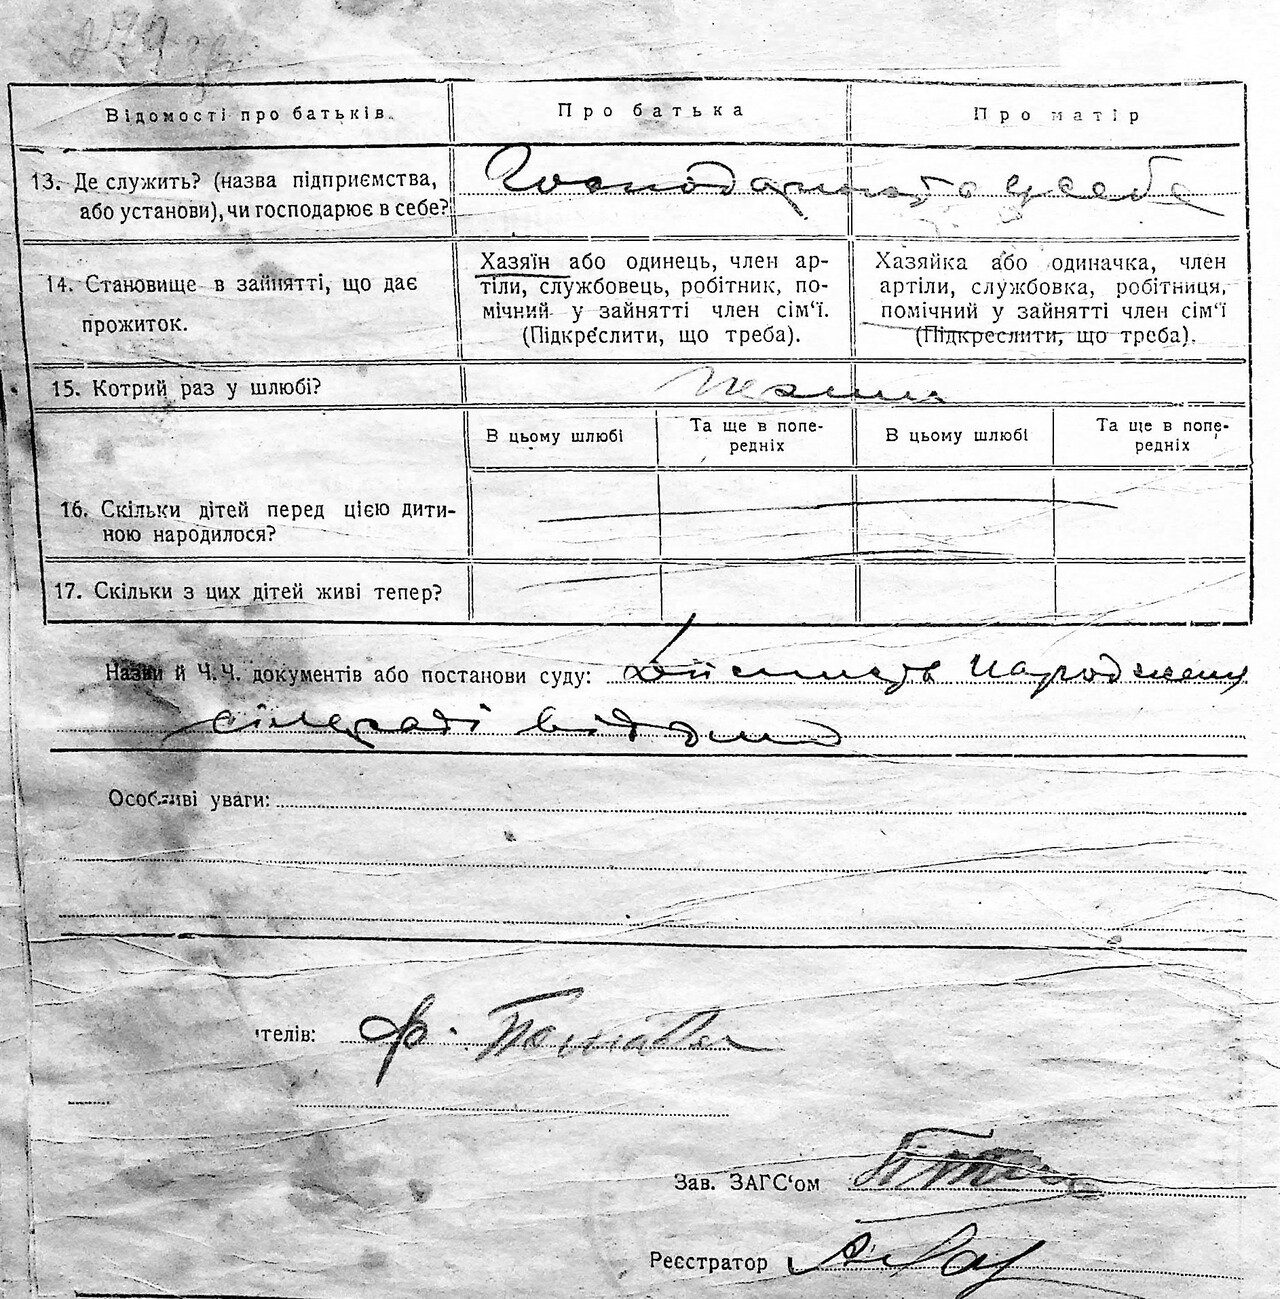 Відомості про батьків.
Про батька
Про матір
13. Де служить? (назва підприємства,
або установи), чи господарює в себе?
Господарюють у себе
14. Становище в зайнятті, що дає
прожиток.
Хазяїн або одинець, член ар-
тіли, службовець, робітник, по-
мічний у зайнятті член сім‘ї.
(Підкреслити, що треба).
Хазяйка або одиначка, член
артіли, службовка, робітниця,
помічний у зайнятті член сім‘ї
(Підкреслити, що треба).
15. Котрий раз у шлюбі?
В цьому шлюбі
Та ще в попе-
редніх
В цьому шлюбі
Та ще в попе-
редніх
16. Скільки дітей перед цією дити-
ною народилося?
17. Скільки з цих дітей живі тепер?
Назви й Ч.Ч. документів або постанови суду:
сільраді відомо
Особливі уваги:
телів: Ф.
Зав. ЗАГС‘ом
Реєстратор